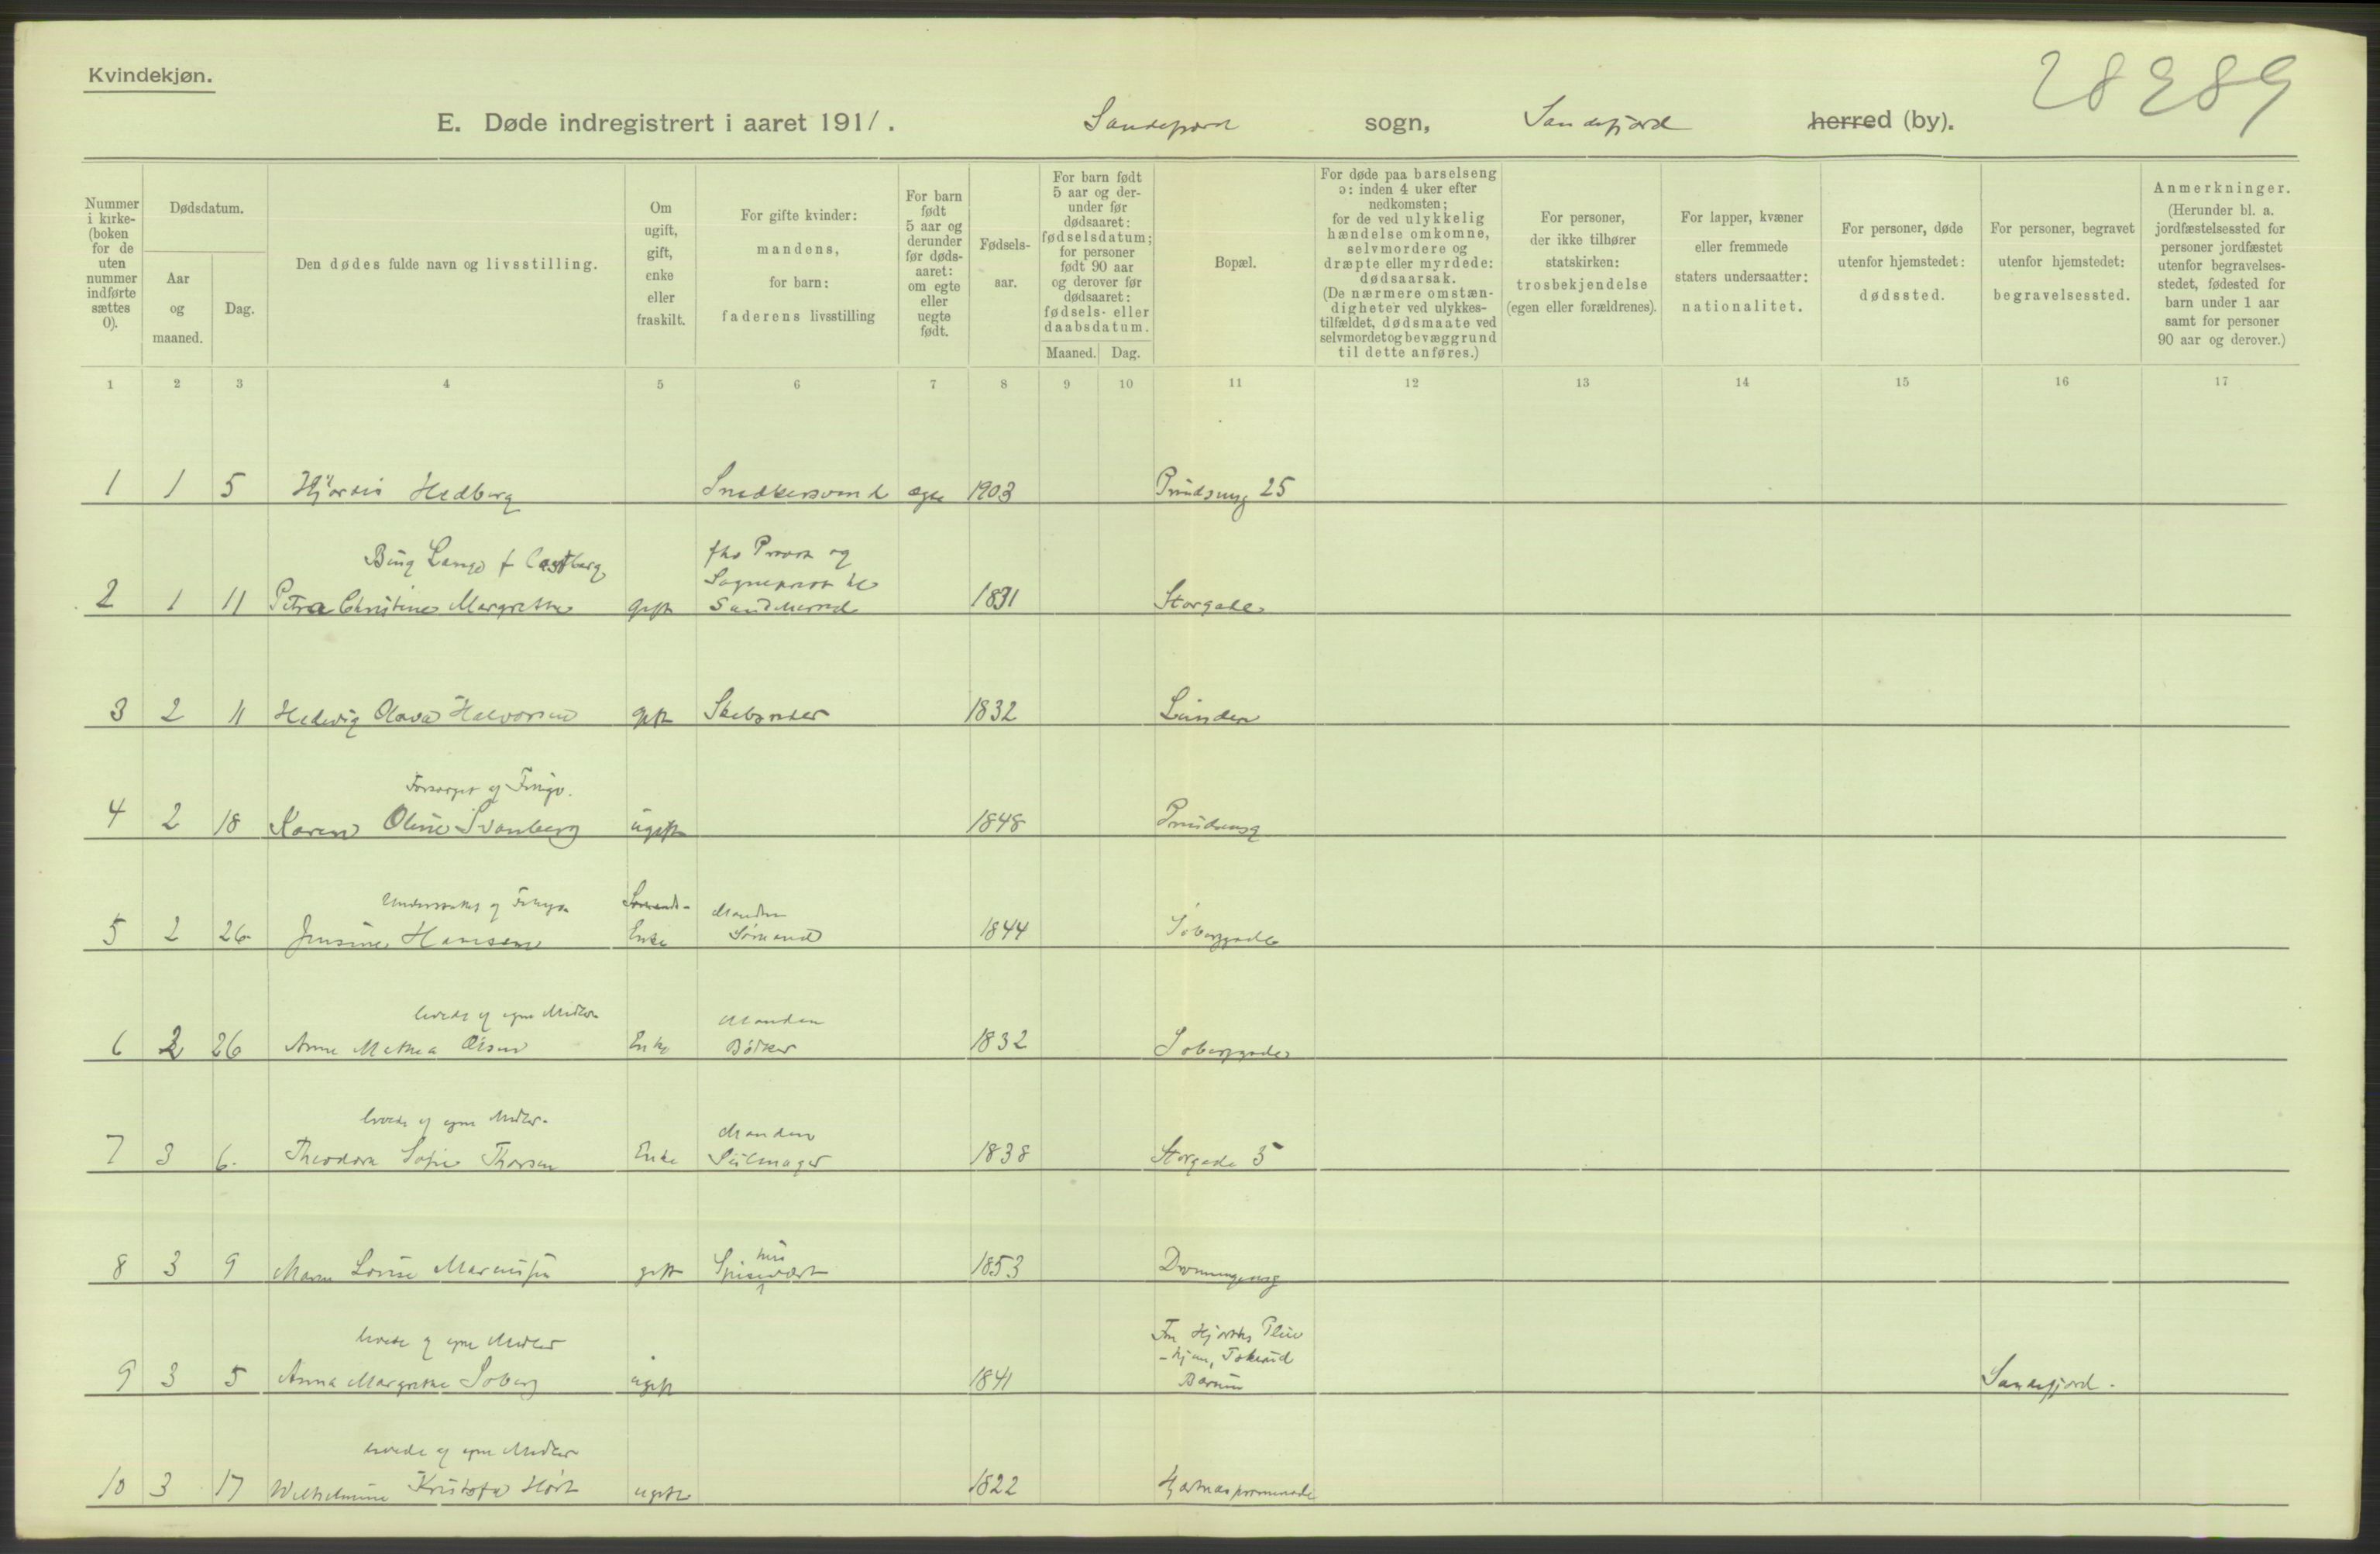 Kvindekjøn.
28289
E. Døde indregistrert i aaret 1911. Sandefjord sogn, Sandefjord herred (by).
Nummer i kirke- (boken for de uten nummer indførte sættes 0).
Dødsdatum.
Aar og maaned.
Dag.
Den dødes fulde navn og livsstilling.
Om ugift, gift, enke eller fraskilt.
For gifte kvinder: mandens, for barn: faderens livsstilling
For barn født 5 aar og derunder før døds- aaret: om egte eller uegte født.
Fødsels- aar.
For barn født 5 aar og der- under før dødsaaret: fødselsdatum; for personer født 90 aar og derover før dødsaaret: fødsels- eller daabsdatum.
Maaned. Dag.
Bopæl.
For døde paa barselseng ɔ: inden 4 uker efter nedkomsten; for de ved ulykkelig hændelse omkomne, selvmordere og dræpte eller myrdede: dødsaarsak. (De nærmere omstæn- digheter ved ulykkes- tilfældet, dødsmaate ved selvmordet og bevæggrund til dette anføres.)
For personer, der ikke tilhører statskirken: trosbekjendelse (egen eller forældrenes).
For lapper, kvæner eller fremmede staters undersaatter: nationalitet.
For personer, døde utenfor hjemstedet: dødssted.
For personer, begravet utenfor hjemstedet: begravelsessted.
Anmerkninger. (Herunder bl. a. jordfæstelsessted for personer jordfæstet utenfor begravelses- stedet, fødested for barn under 1 aar samt for personer 90 aar og derover.)
1 2 3 4 5 6 7 8 9 10 11 12 13 14 15 16 17
1 1 5 Hjørdis Hedberg Snedkersvend egte 1903 25
Bing Lange f Castberg Provst og
Sogneprest til
2 1 11 Petra Christine Margrethe gift Sandeherred 1831 Storgate
3 2 11 Hedevig Olava Halvorsen gift 1832 Linden
Forsørget af Fattigv.
4 2 18 Karen Oline Svanberg ugift 1848
af Enke Manden
5 2 26 Jensine Hansen Sømand 1844 Søberggade
levede af egne Midler Manden
6 2 26 Anne Mathea Olsen Enke Bødker 1832 Søberggade
levede af egne Midler Manden
7 3 6 Theodora Sofie Thorsen Enke Seilmager 1838 Storgade 5
hus
8 3 9 Maren Lovise Marcussen gift Spisevært 1853 Dronningensg
levede af egne Midler Fru Hjorths Pleie
-hjem, Tokerud
9 3 5 Anna Margrethe Søberg ugift 1841 Bærum Sandefjord.
levede af egne Midler
10 3 17 Wilhelmine Kristofa Hørt ugift 1822 Hjertnespromenade